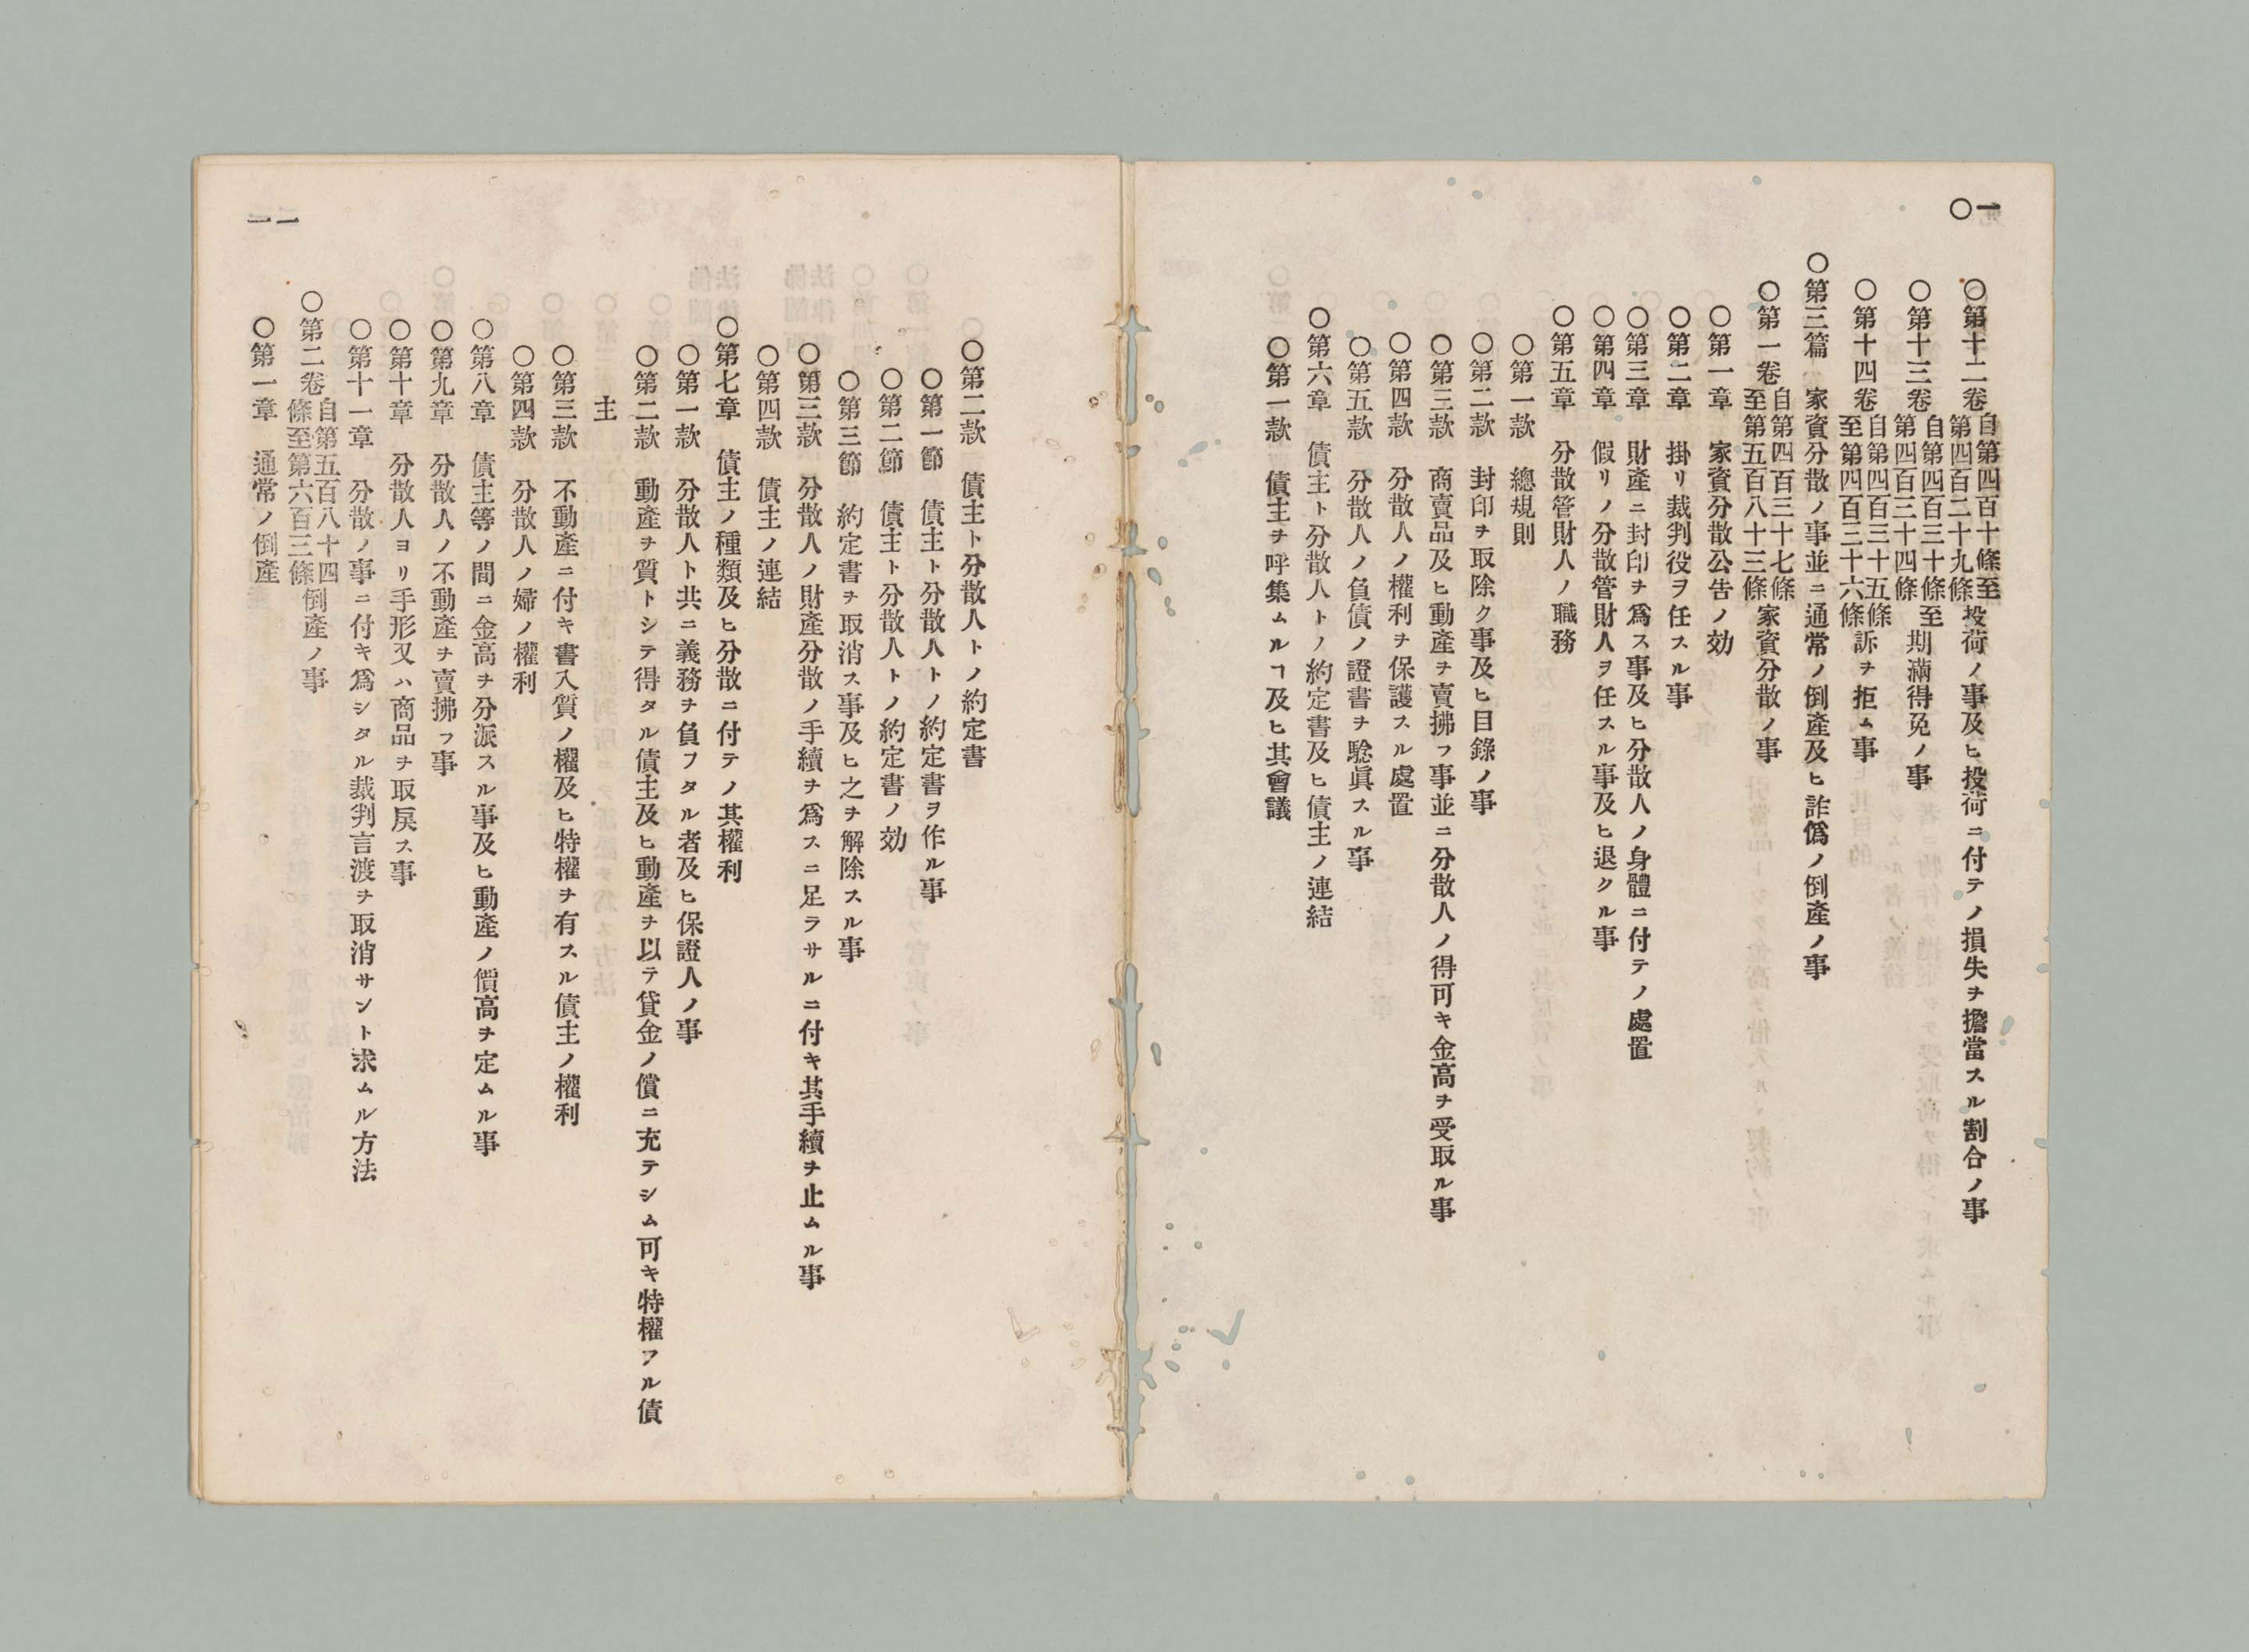 一〇
〇第十二卷自第四百十條至第四百二十九條投荷ノ事及ヒ投荷ニ付テノ損失ヲ擔當スル割合ノ事
〇第十三卷自第四百三十條至第四百三十四條期滿得免ノ事
〇第十四卷自第四百三十五條至第四百三十六條訴ヲ拒ム事
〇第三篇 家資分散ノ事並ニ通常ノ倒產及ヒ詐僞ノ倒產ノ事
〇第一卷自第四百三十七條至第五百八十三條家資分散ノ事
〇第一章 家資分散公告ノ効
〇第二章 掛リ裁判役ヲ任スル事
〇第三章 財產ニ封印ヲ爲ス事及ヒ分散人ノ身體ニ付テノ處置
〇第四章 假リノ分散管財人ヲ任スル事及ヒ退クル事
〇第五章 分散管財人ノ職務
〇第一款 總規則
〇第二款 封印ヲ取除ク事及ヒ目錄ノ事
〇第三款 商賣品及ヒ動產ヲ賣拂フ事並ニ分散人ノ得可キ金高ヲ受取ル事
〇第四款 分散人ノ權利ヲ保護スル處置
〇第五款 分散人ノ負債ノ證書ヲ驗眞スル事
〇第六章 債主ト分散人トノ約定書及ヒ債主ノ連結
〇第一款 債主ヲ呼集ムルヿ及ヒ其會議
一一
〇第二款 債主ト分散人トノ約定書
〇第一節 債主ト分散人トノ約定書ヲ作ル事
〇第二節 債主ト分散人トノ約定書ノ効
〇第三節 約定書ヲ取消ス事及ヒ之ヲ解除スル事
〇第三款 分散人ノ財產分散ノ手續ヲ爲スニ足ラサルニ付キ其手續ヲ止ムル事
〇第四款 債主ノ連結
〇第七章 債主ノ種類及ヒ分散ニ付テノ其權利
〇第一款 分散人ト共ニ義務ヲ負フタル者及ヒ保證人ノ事
〇第二款 動產ヲ質トシテ得タル債主及ヒ動產ヲ以テ貸金ノ償ニ充テシム可キ特權アル債
主
〇第三款 不動產ニ付キ書入質ノ權及ヒ特權ヲ有スル債主ノ權利
〇第四款 分散人ノ婦ノ權利
〇第八章 債主等ノ間ニ金高ヲ分派スル事及ヒ動產ノ價高ヲ定ムル事
〇第九章 分散人ノ不動產ヲ賣拂フ事
〇第十章 分散人ヨリ手形又ハ商品ヲ取戾ス事
〇第十一章 分散ノ事ニ付キ爲シタル裁判言渡ヲ取消サント求ムル方法
〇第二卷自第五百八十四條至第六百三條倒產ノ事
〇第一章 通常ノ倒產